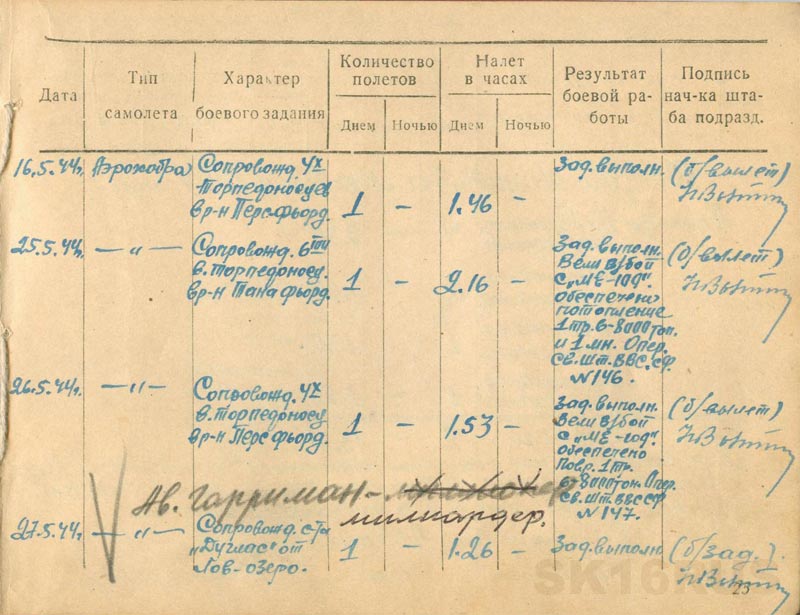 Дата
Тип самолета
Характер боевого задания
Количество полетов
Налет в часах
Результат боевой работы
Подпись нач-ка штаба подразд.
Днем Ночью Днем Ночью
16.5.44г. Аэрокобра Сопровожд. 4х 1 – 1.46 – Зад. выполн. (б/вылет)
Торпедоносцев
в р-н Перс-фьорд.
25.5.44г. –„– Сопровожд. 6ти 1 – 2.16 – Зад. выполн. (б/вылет)
в. торпедоносц.
в р-н Тана фьорд.
Вели в/бой
с „МЕ-109".
обеспечено
потопление
1 тр. 6-8000 тон.
и 1 мн. Опер.
св. шт. ВВС. СФ
N 146.
26.5.44г. –„– Сопровожд. 4х 1 – 1.53 – Зад. выполн. (б/вылет)
в. торпедоносц
в р-н Перс фьорд.
Вели в/бой
с „МЕ-109".
обеспечено
Повр. 1 тр.
6-8000 тон. Опер.
Св. шт. ВВС СФ
N 147.
Ав. Гарриман -
милиардер.
27.5.44г. –„– Сопровожд. с-та 1 – 1.26 – Зад. выполн (б/зад.).
„Дуглас" от
Лов-озеро.
SK16.RU
25